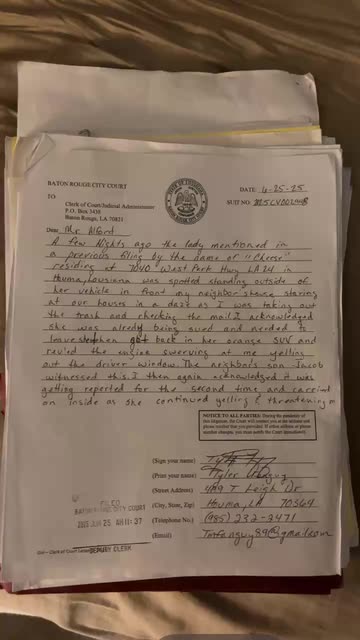 BATON ROUGE CITY COURT
TO
Clerk of Court/Judicial Administrator
P.O. Box 3438
Baton Rouge, LA 70821
DATE: 6-25-25
SUIT NO:
Dear Mr. Alford
A few Nights ago the lady mentioned in
a previous filing by the name of "Cherse"
residing at 7040 West Park Hwy LA 24 in
Houma, Louisiana was spotted standing outside of
her vehicle in front my neighbors house staring
at our houses in a daze as I was taking out
the trash and checking the mail. I acknowledged
she was already being sued and needed to
leave then got back in her orange SUV and
reved the engine swerving at me yelling
out the driver window. The neighbors son Jacob
witnessed this. I then again acknowledged it was
getting reported for the second time and carried
on inside as she continued yelling & threatening m
NOTICE TO ALL PARTIES: During the pendency of
this litigation, the Court will contact you at the address and
phone number that you provided. If either address or phone
number changes, you must notify the Court immediately.
(Sign your name)
(Print your name) Tyler
(Street Address) 409 T Leigh Dr
(City, State, Zip) Houma, LA 70364
(Telephone No.) (985) 232-2471
(Email)
FILED
BATON ROUGE CITY COURT
2025 JUN 25 AM 11:27
DEPUTY CLERK